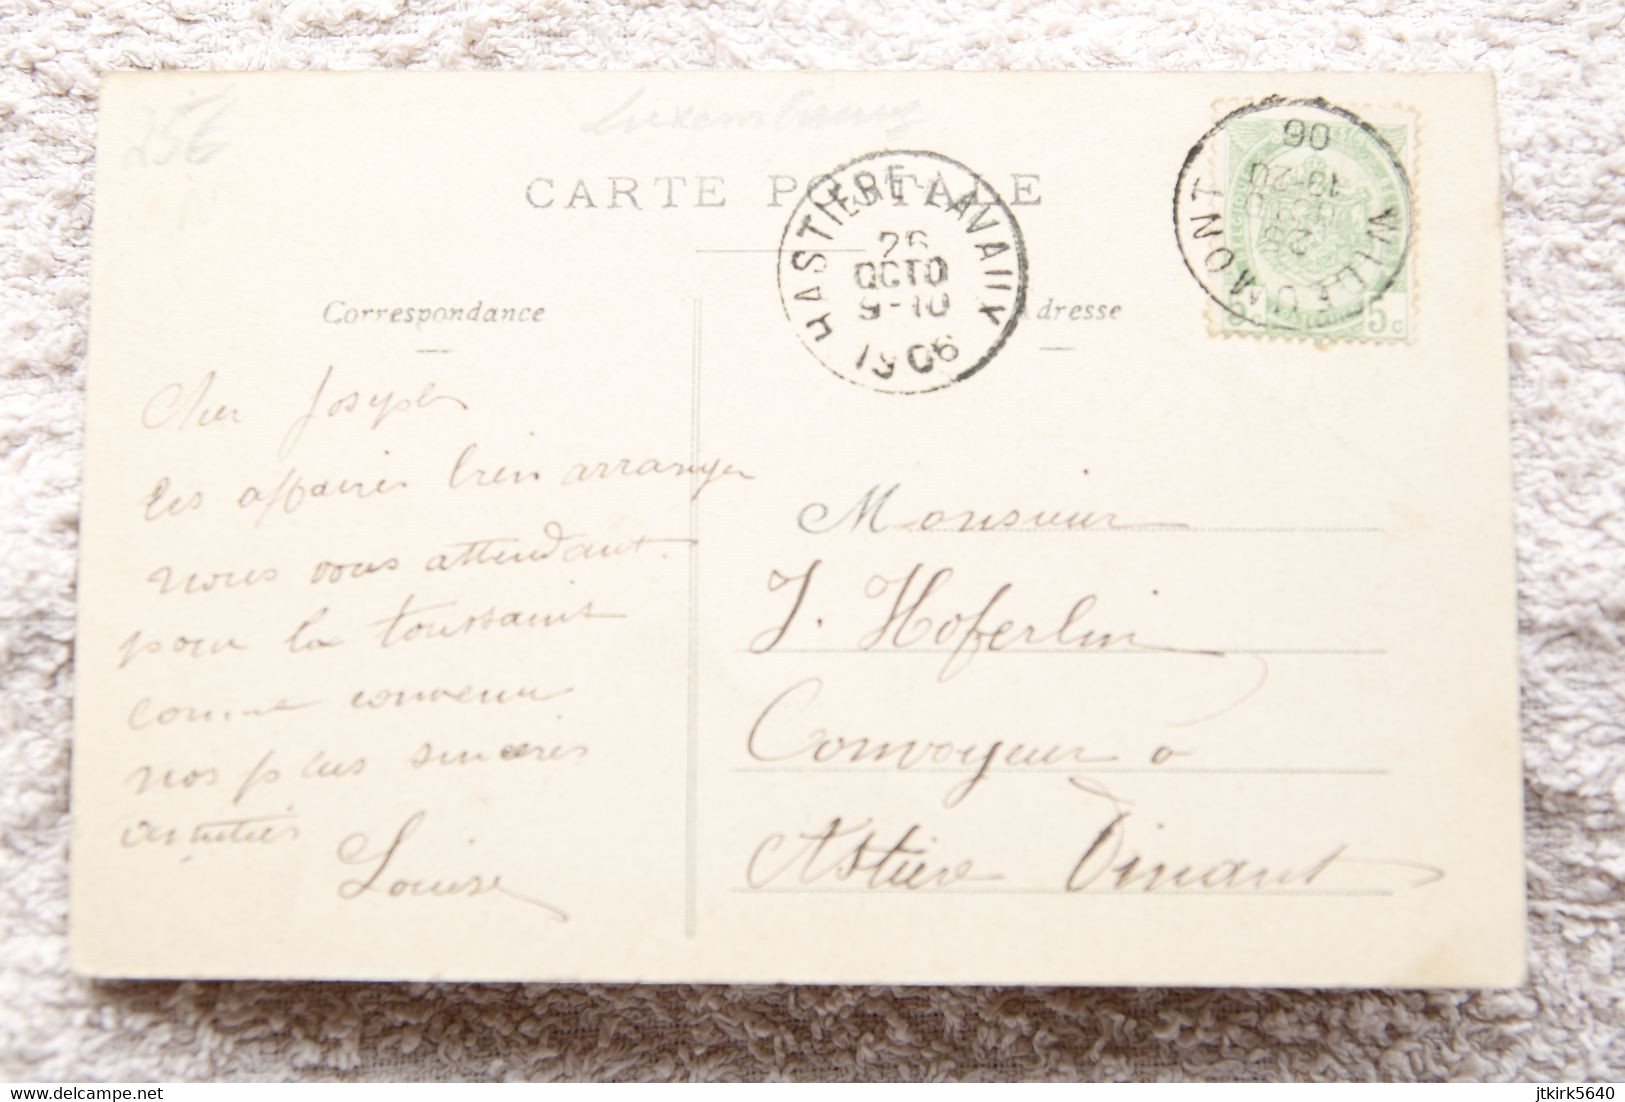 25€
Luxembourg
CARTE POSTALE
HASTIERE LAVAUX
26
OCTO
9-10
1906
WILLEMONT
19-20
06
5c
Correspondance
Adresse
Cher Joseph
les affaires bien arranger
nous vous attendant.
pour la toussaint
comme convenu
nos plus sincères
amitiés
Louise
Monsieur
J. Hoferlin
Convoyeur à
Astière Dinant
delcampe.net
jtkirk5640